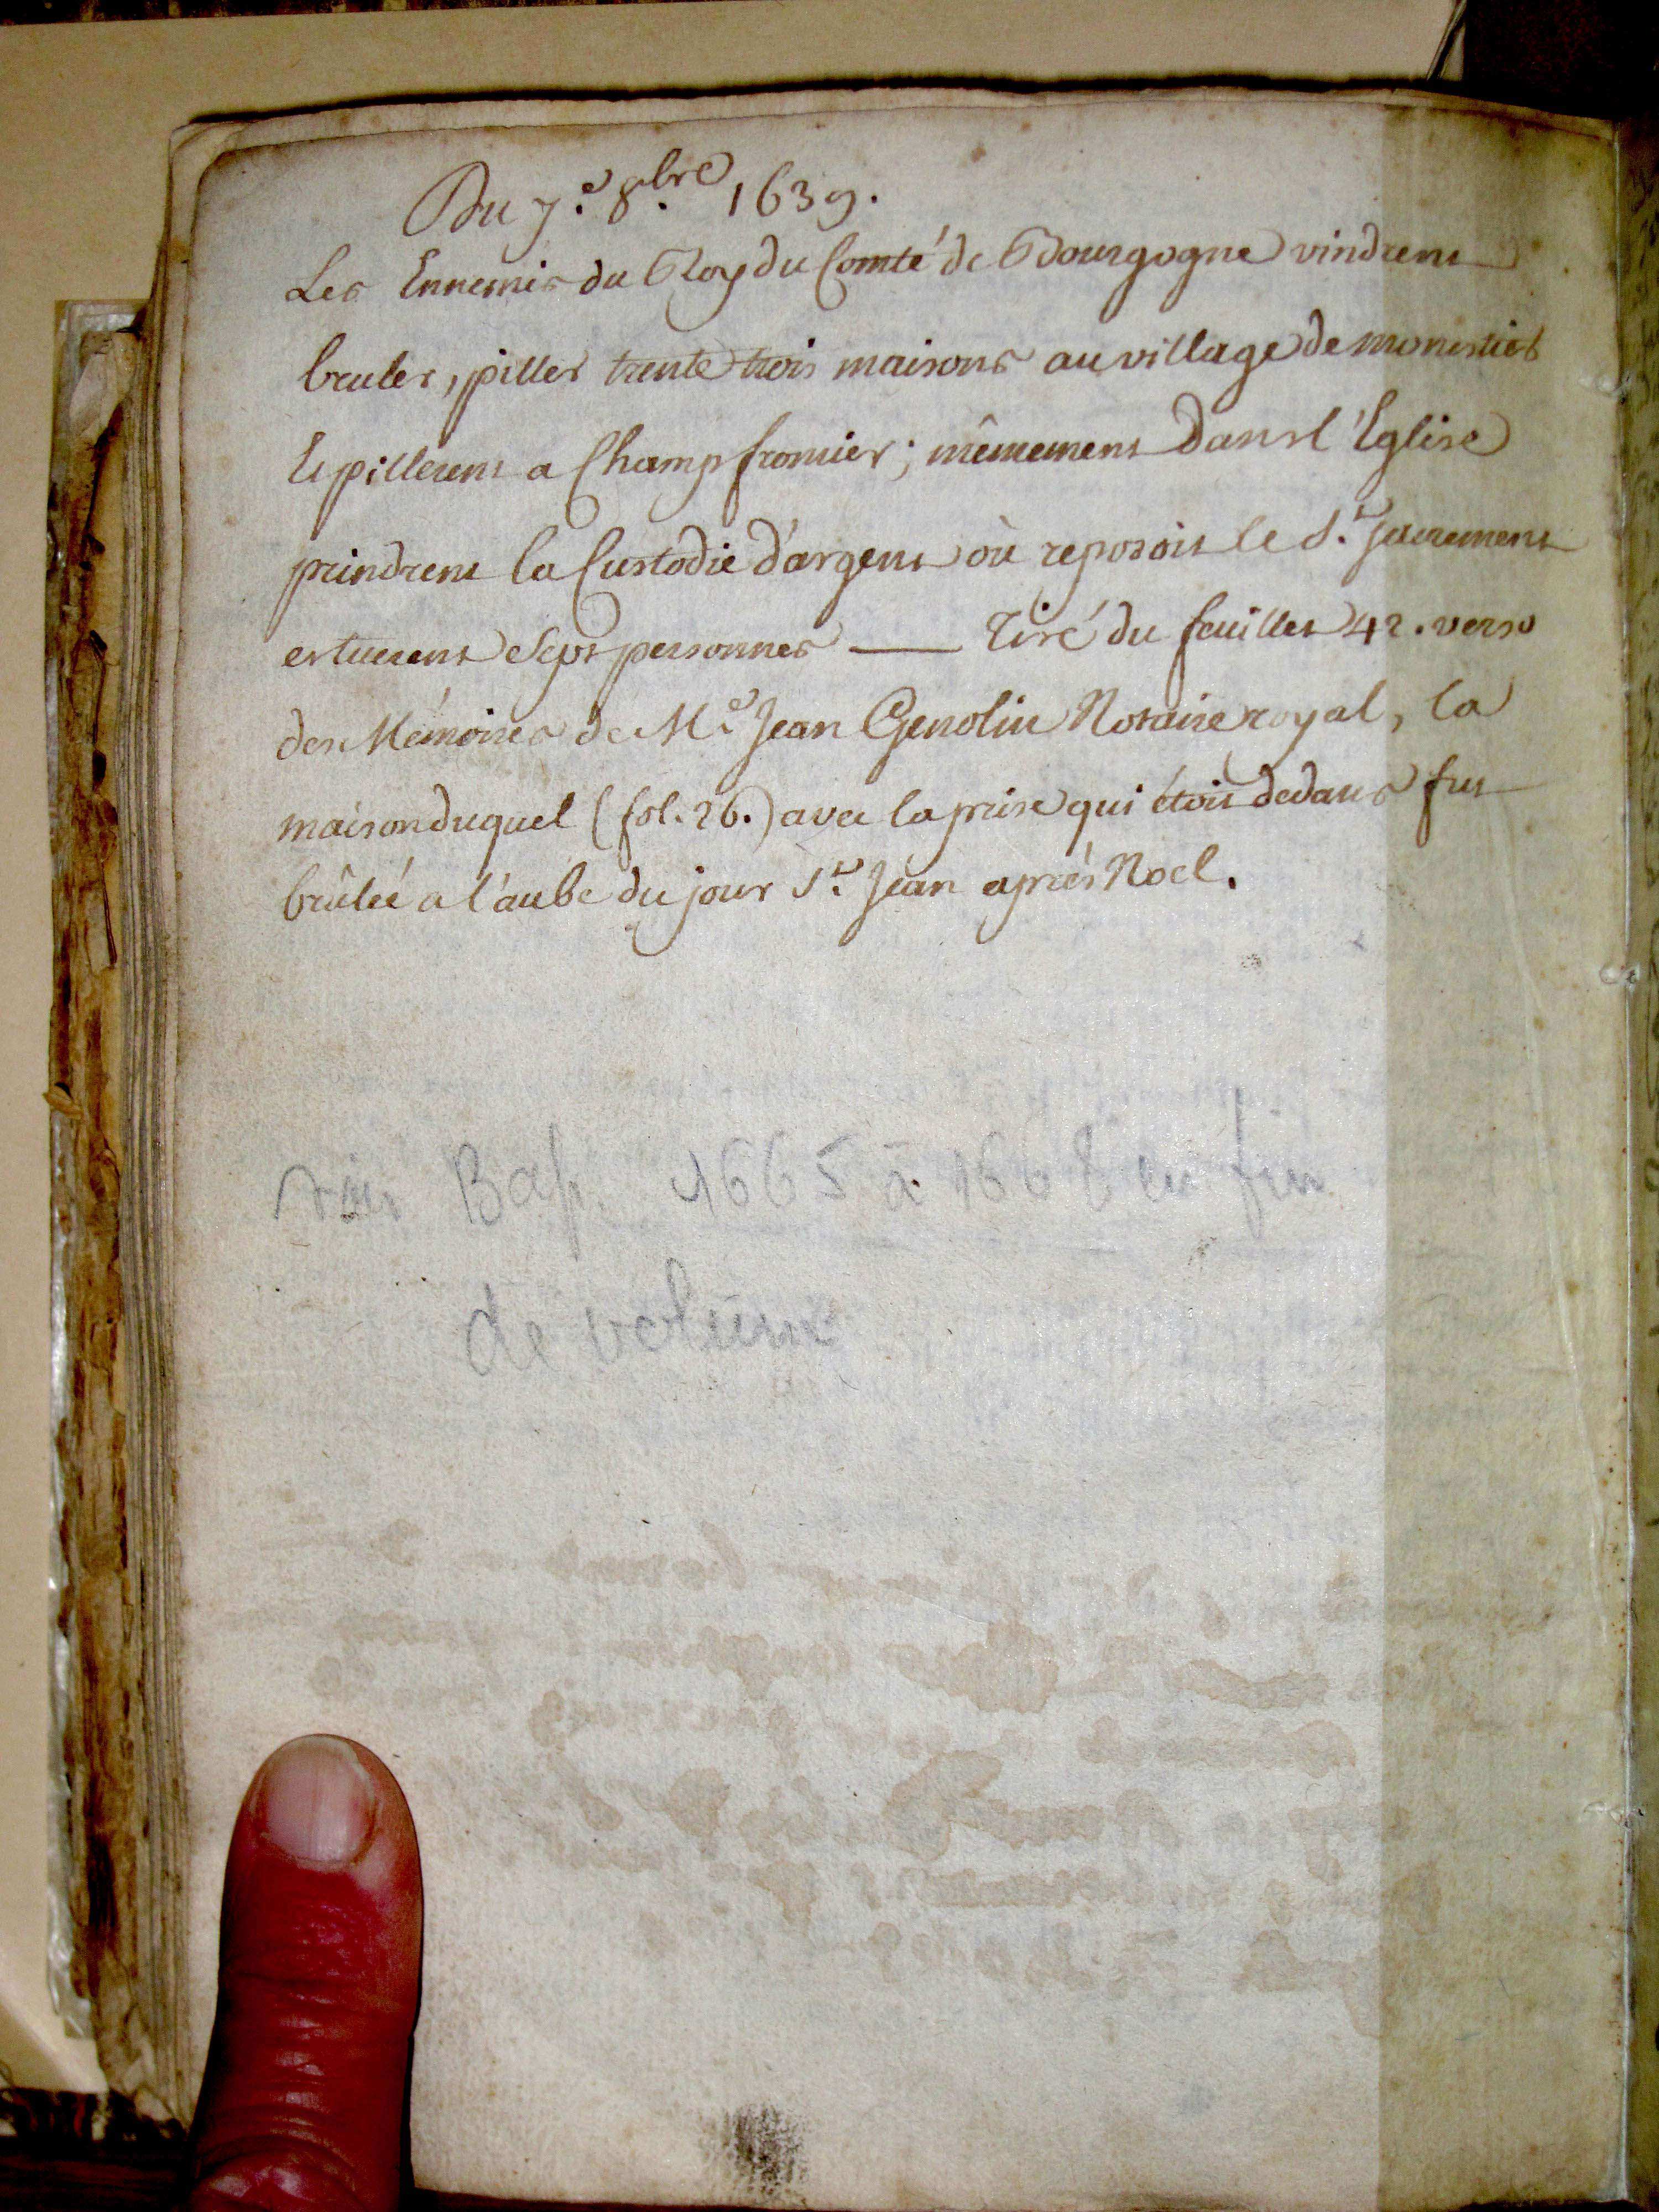 Du 7.e 8.bre 1639.
Les Ennemis du Roy du Comté de Bourgogne vindrent
bruler, piller trente trois maisons au village de monestier
Et pillerent a Champfromier; mêmement dans l'Eglise
prindrent la Custodie d'argent où reposoit le St. Sacrement
et tuerent Sept personnes — Tiré du feuillet 42. verso
des Mémoires de Me. Jean Genolin Notaire royal, la
maison duquel (fol. 26.) avec la prise qui étoit dedans fut
brûlée a l'aube du jour St. Jean après Noel.
voir Bapt. 1665 à 1668 en fin
de volume